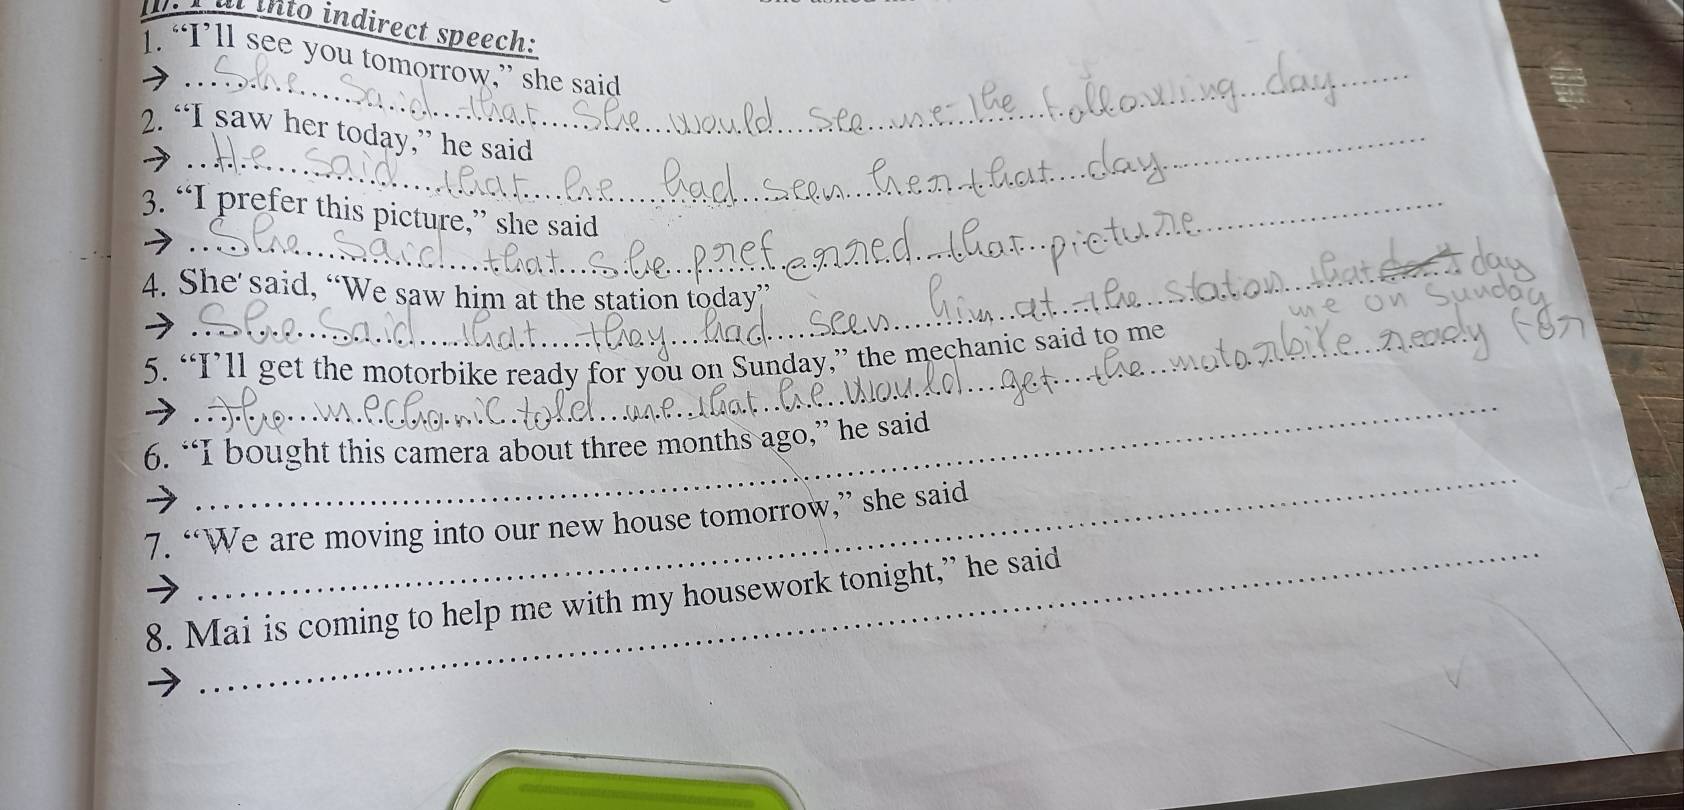 into indirect speech:
1. “I’ll see you tomorrow,” she said
→ She said that she would see me the following day
2. “I saw her today,” he said
→ He said that he had seen her that day
3. “I prefer this picture,” she said
→ She said that she preferred that picture
4. She said, “We saw him at the station today”
→ She said that they had seen him at the station that day
5. “I’ll get the motorbike ready for you on Sunday,” the mechanic said to me
me on Sunday
→ the mechanic told me that he would get the motorbike ready for
6. “I bought this camera about three months ago,” he said
→
7. “We are moving into our new house tomorrow,” she said
→
8. Mai is coming to help me with my housework tonight,” he said
→